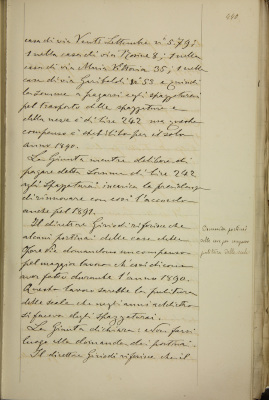 casa di via Venti Settembre n° 5.79;
1 nella casa di via Roma 8; 1 nella
casa di via Maria Vittoria 35; 1 nella
casa di via Garibaldi n° 53 e quindi
la somma a pagarsi agli spazzaturai
pel trasporto delle spazzature e
della neve è di lire 242 ma questo
compenso è stabilito per il solo
anno 1890.
La Giunta mentre delibera di
pagare detta somma di lire 242
agli Spazzaturai incarica la presidenza
di rinnovare con essi l'accordo
anche pel 1891.
Il direttore Giriodi riferisce che
alcuni portinai delle case della
domandano un compenso
pel maggior lavoro che essi dicono
aver fatto durante l'anno 1890.
Questo lavoro sarebbe la pulitura
delle scale che negli anni addietro
si faceva dagli spazzaturai.
La Giunta dichiara: Non farsi
luogo alla domanda dei portinai.
Il direttore Giriodi riferisce che il
portinai
pulitura delle scale